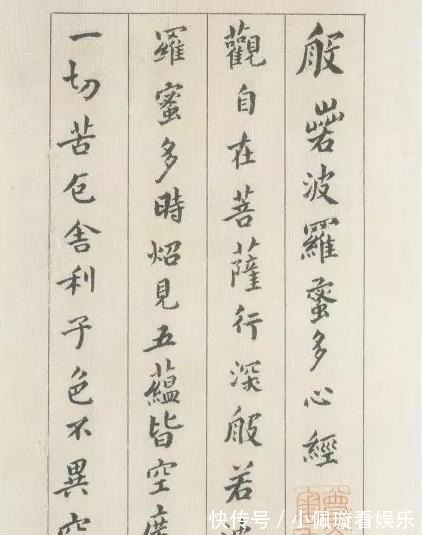 般若波羅蜜多心經
觀自在菩薩行深般若波
羅蜜多時炤見五蘊皆空度
一切苦厄舍利子色不異空
快传号 / 小佩璇看娱乐